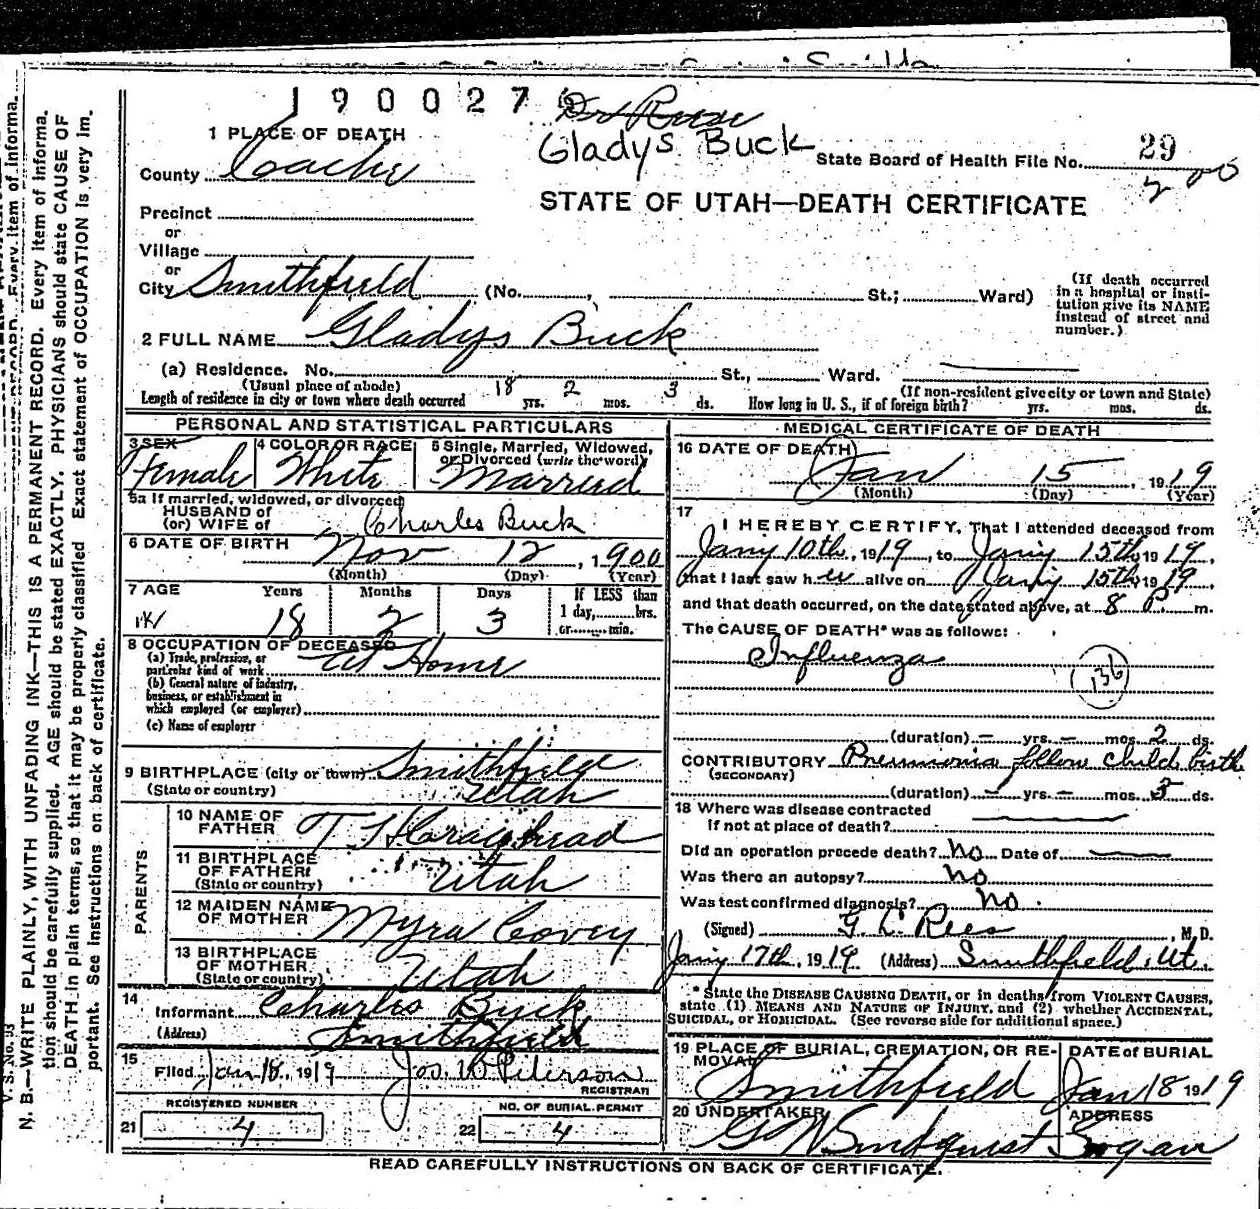 1900276
Gladys Buck
1 PLACE OF DEATH
County Cache
State Board of Health File No. 29
200
STATE OF UTAH—DEATH CERTIFICATE
Precinct
or
Village
or
City Smithfield (No. , St.; Ward)
(If death occurred in a hospital or institution give its NAME instead of street and number.)
2 FULL NAME Gladys Buck
(a) Residence. No. St., Ward.
(Usual place of abode) (If non-resident give city or town and State)
Length of residence in city or town where death occurred 18 yrs. 2 mos. 3 ds. How long in U. S., if of foreign birth? yrs. mos. ds.
PERSONAL AND STATISTICAL PARTICULARS
3 SEX Female
4 COLOR OR RACE White
5 Single, Married, Widowed, or Divorced (write the word) Married
5a If married, widowed, or divorced
HUSBAND of
(or) WIFE of Charles Buck
6 DATE OF BIRTH Nov 12, 1900
(Month) (Day) (Year)
7 AGE Years Months Days If LESS than
1 day, hrs.
or min.
18 2 3
8 OCCUPATION OF DECEASED
(a) Trade, profession, or
particular kind of work At Home
(b) General nature of industry,
business, or establishment in
which employed (or employer)
(c) Name of employer
9 BIRTHPLACE (city or town) Smithfield
(State or country) Utah
PARENTS
10 NAME OF
FATHER
11 BIRTHPLACE
OF FATHER
(State or country) Utah
12 MAIDEN NAME
OF MOTHER Myra Covey
13 BIRTHPLACE
OF MOTHER
(State or country) Utah
14
Informant Charles Buck
(Address) Smithfield
15
Filed Jan 18, 1919 Jos. W Peterson
REGISTRAR
REGISTERED NUMBER
21 4
NO. OF BURIAL PERMIT
22 4
MEDICAL CERTIFICATE OF DEATH
16 DATE OF DEATH
Jan 15, 1919
(Month) (Day) (Year)
17
I HEREBY CERTIFY, That I attended deceased from
Jany 10th, 1919, to Jany 15th 1919,
that I last saw her alive on Jany 15th 1919,
and that death occurred, on the date stated above, at 8 P. m.
The CAUSE OF DEATH* was as follows:
Influenza
136
(duration) — yrs. — mos. 2 ds.
CONTRIBUTORY Pneumonia follow child birth
(SECONDARY)
(duration) — yrs. — mos. 5 ds.
18 Where was disease contracted
if not at place of death?
Did an operation precede death? No Date of
Was there an autopsy? No
Was test confirmed diagnosis? No.
(Signed) G. L. Rees, M. D.
Jany 17th, 1919 (Address) Smithfield, Ut.
*State the DISEASE CAUSING DEATH, or in deaths from VIOLENT CAUSES,
state (1) MEANS AND NATURE OF INJURY, and (2) whether ACCIDENTAL,
SUICIDAL, or HOMICIDAL. (See reverse side for additional space.)
19 PLACE OF BURIAL, CREMATION, OR RE-
MOVAL Smithfield
DATE of BURIAL
Jan 18 1919
20 UNDERTAKER
ADDRESS
Logan
READ CAREFULLY INSTRUCTIONS ON BACK OF CERTIFICATE.
V. S. No. 93
N. B.—WRITE PLAINLY, WITH UNFADING INK—THIS IS A PERMANENT RECORD. Every item of informa-
tion should be carefully supplied. AGE should be stated EXACTLY. PHYSICIANS should state CAUSE OF
DEATH in plain terms, so that it may be properly classified. Exact statement of OCCUPATION is very im-
portant. See instructions on back of certificate.